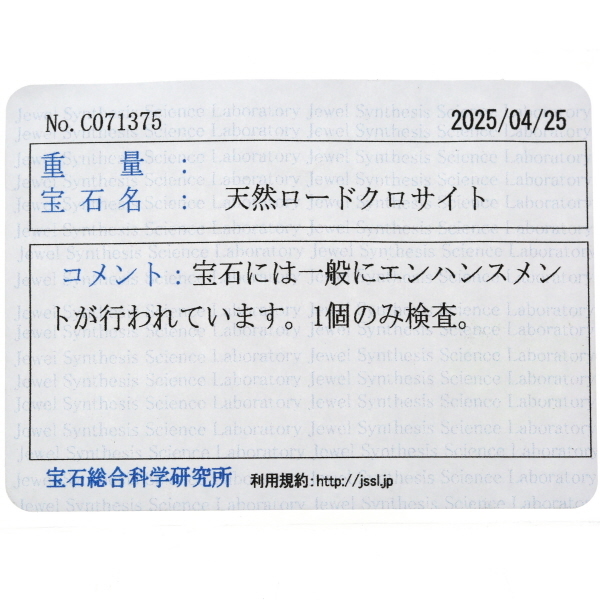 No.C071375 2025/04/25
重量：
宝石名： 天然ロードクロサイト
コメント：宝石には一般にエンハンスメン
トが行われています。1個のみ検査。
宝石総合科学研究所 利用規約：http://jssl.jp
Jewel Synthesis Science Laboratory